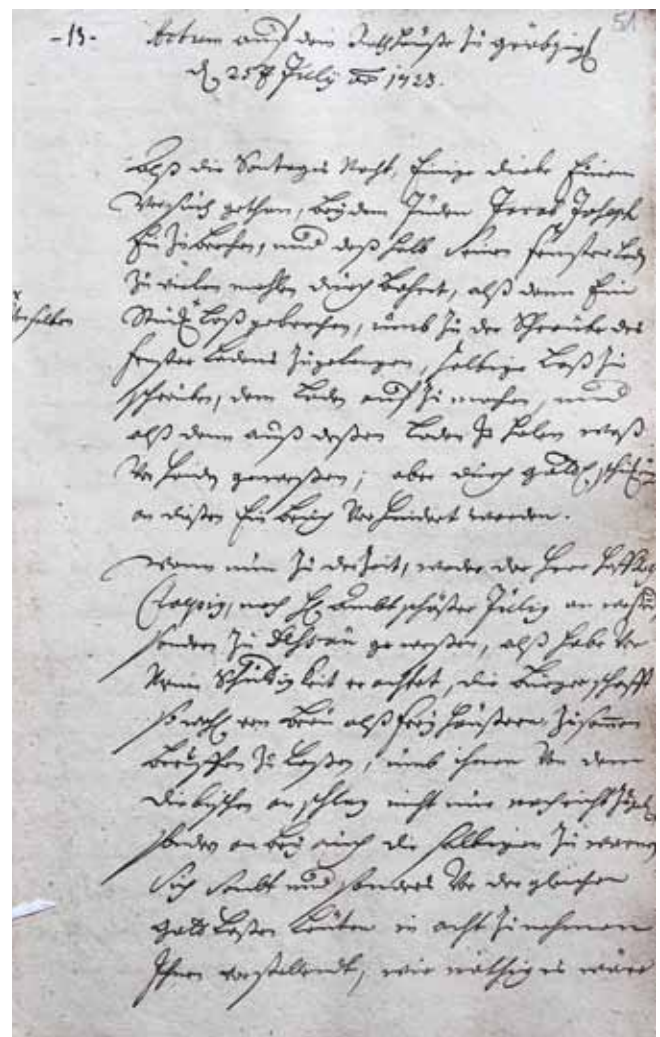 51
-13- Actum auf dem Rathhauße zu Gröbzigk
d. 25t Julij Ao 1723.
Alß die Sontags Nacht, Einige Diebe Einen
Versuch gethan, bey dem Juden Jacob Joseph
Ein zu brechen, und deß halb seinen fenster laden
zu vielen mahlen durch bohret, alß dann Ein
Stück loß gebrochen, umb zu der Schraube des
fenster ladens zu gelangen, selbige loß zu
schrauben, den laden auf zu machen, und
alß dann auß deßen laden zu holen waß
Vorhanden geweßen; aber durch göttl.
an dießen Einbruch Verhindert worden.
Wann nun zu der Zeit, weder der Herr Hoffrath
noch H. Ambtschößer an
sondern zu Deßau geweßen, alß habe vor
meine Schuldigkeit erachtet, die Bürgerschafft
so wohl von Brau alß freyhäußern zusammen
beruffen zu laßen, umb ihnen von dem
diebischen anschlag nicht nur nachricht
sondern an bey auch die selbigen zu warnen
sich samt und sonders vor dergleichen
gottloßen leuten in acht zu nehmen
Ihnen vorstellendt, wie nöthig es wäre